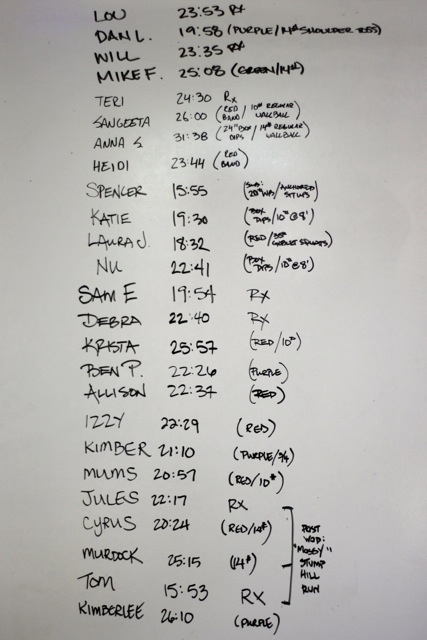 LOU 23:53 RX
DAN L. 19:58 (PURPLE/14# SHOULDER
WILL 23:35 RX
MIKE F. 25:08 (GREEN/14#)
TERI 24:30 Rx
SANGEETA 26:00 (RED BAND / 10# REGULAR WALLBALL)
ANNA S. 31:38 (24" BOX DIPS / 14# REGULAR WALLBALL)
HEIDI 23:44 (RED BAND)
SPENCER 15:55 (SUB: 20# WB/ANCHORED SITUPS)
KATIE 19:30 (BOX DIPS/10# @ 8')
LAURA J. 18:32 (RED/35# GOBLET SQUATS)
NU 22:41 (BOX DIPS/10# @ 8')
SAM E 19:54 RX
DEBRA 22:40 RX
KRISTA 25:57 (RED/10#)
BEN P. 22:26 (PURPLE)
ALLISON 22:34 (RED)
IZZY 22:29 (RED)
KIMBER 21:10 (PURPLE/3/4)
MUMS 20:57 (RED/10#)
JULES 22:17 RX
CYRUS 20:24 (RED/14#)
MURDOCK 25:15 (14#)
TOM 15:53 RX
KIMBERLEE 26:10 (PURPLE)
POST
WOD:
"MOSEY"
STUMP
HILL
RUN